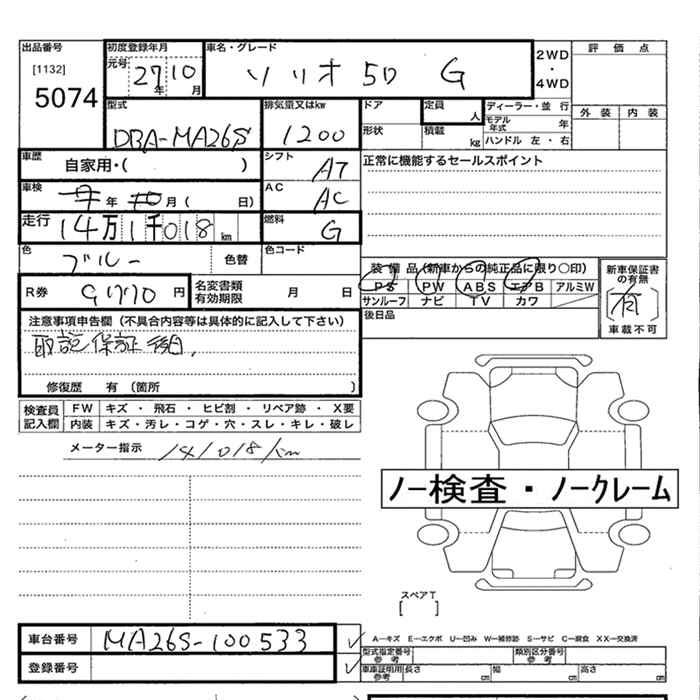 出品番号 初度登録年月 車名・グレード 2WD 評価点
[1132] 元号 27年 10月 ソリオ 5D G ・
5074 4WD 外装 内装
型式 排気量又はkw ドア 定員 人 ディーラー・並行
DBA-MA26S 1200 形状 積載 kg モデル年式 年
ハンドル 左・右
車歴 自家用・( ) シフト AT 正常に機能するセールスポイント
車検 年 月( 日) AC AC
走行 14万1千018km 燃料 G
色 ブルー 色替 色コード
装備品(新車からの純正品に限り○印) 新車保証書の有無
PS PW ABS エアB アルミW 有
サンルーフ ナビ TV カワ 車載不可
R券 円 名変書類有効期限 月 日 後日品
注意事項申告欄(不具合内容等は具体的に記入して下さい)
取説保証後日、
修復歴 有(箇所 )
検査員記入欄 FW キズ・飛石・ヒビ割・リペア跡・X要
内装 キズ・汚レ・コゲ・穴・スレ・キレ・破レ
メーター指示 141018km
ノー検査・ノークレーム
スペアT
[ ]
車台番号 MA26S-100533
A―キズ E―エクボ U―凹み W―補修跡 S―サビ C―腐食 XX―交換済
型式指定番号参考 類別区分番号参考
登録番号
車車証明用参考 長さ cm 幅 cm 高さ cm